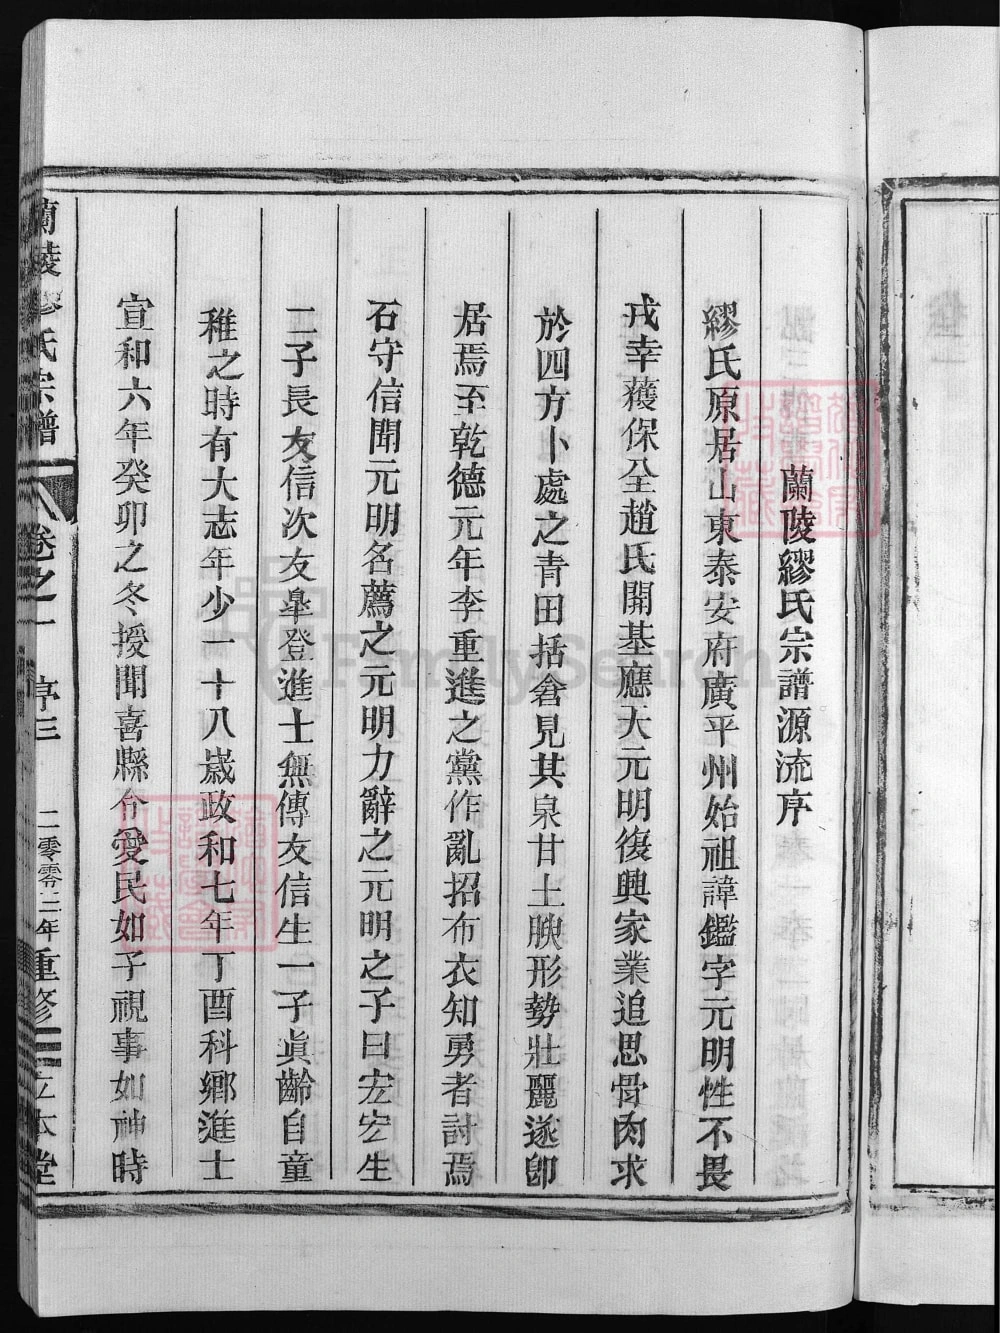 蘭陵繆氏宗譜源流序
繆氏原居山東泰安府廣平州始祖諱鑑字元明性不畏
戎幸獲保全趙氏開基應天元明復興家業追思骨肉求
於四方卜處之青田括倉見其泉甘土腴形勢壯麗遂卽
居焉至乾德元年李重進之黨作亂招布衣知勇者討焉
石守信聞元明名薦之元明力辭之元明之子曰宏宏生
二子長友信次友皋登進士無傳友信生一子眞齡自童
稚之時有大志年少一十八歲政和七年丁酉科鄉進士
宣和六年癸卯之冬授聞喜縣令愛民如子視事如神時
蘭陵繆氏宗譜 卷之一 序三 二零零二年重修 立本堂
FamilySearch